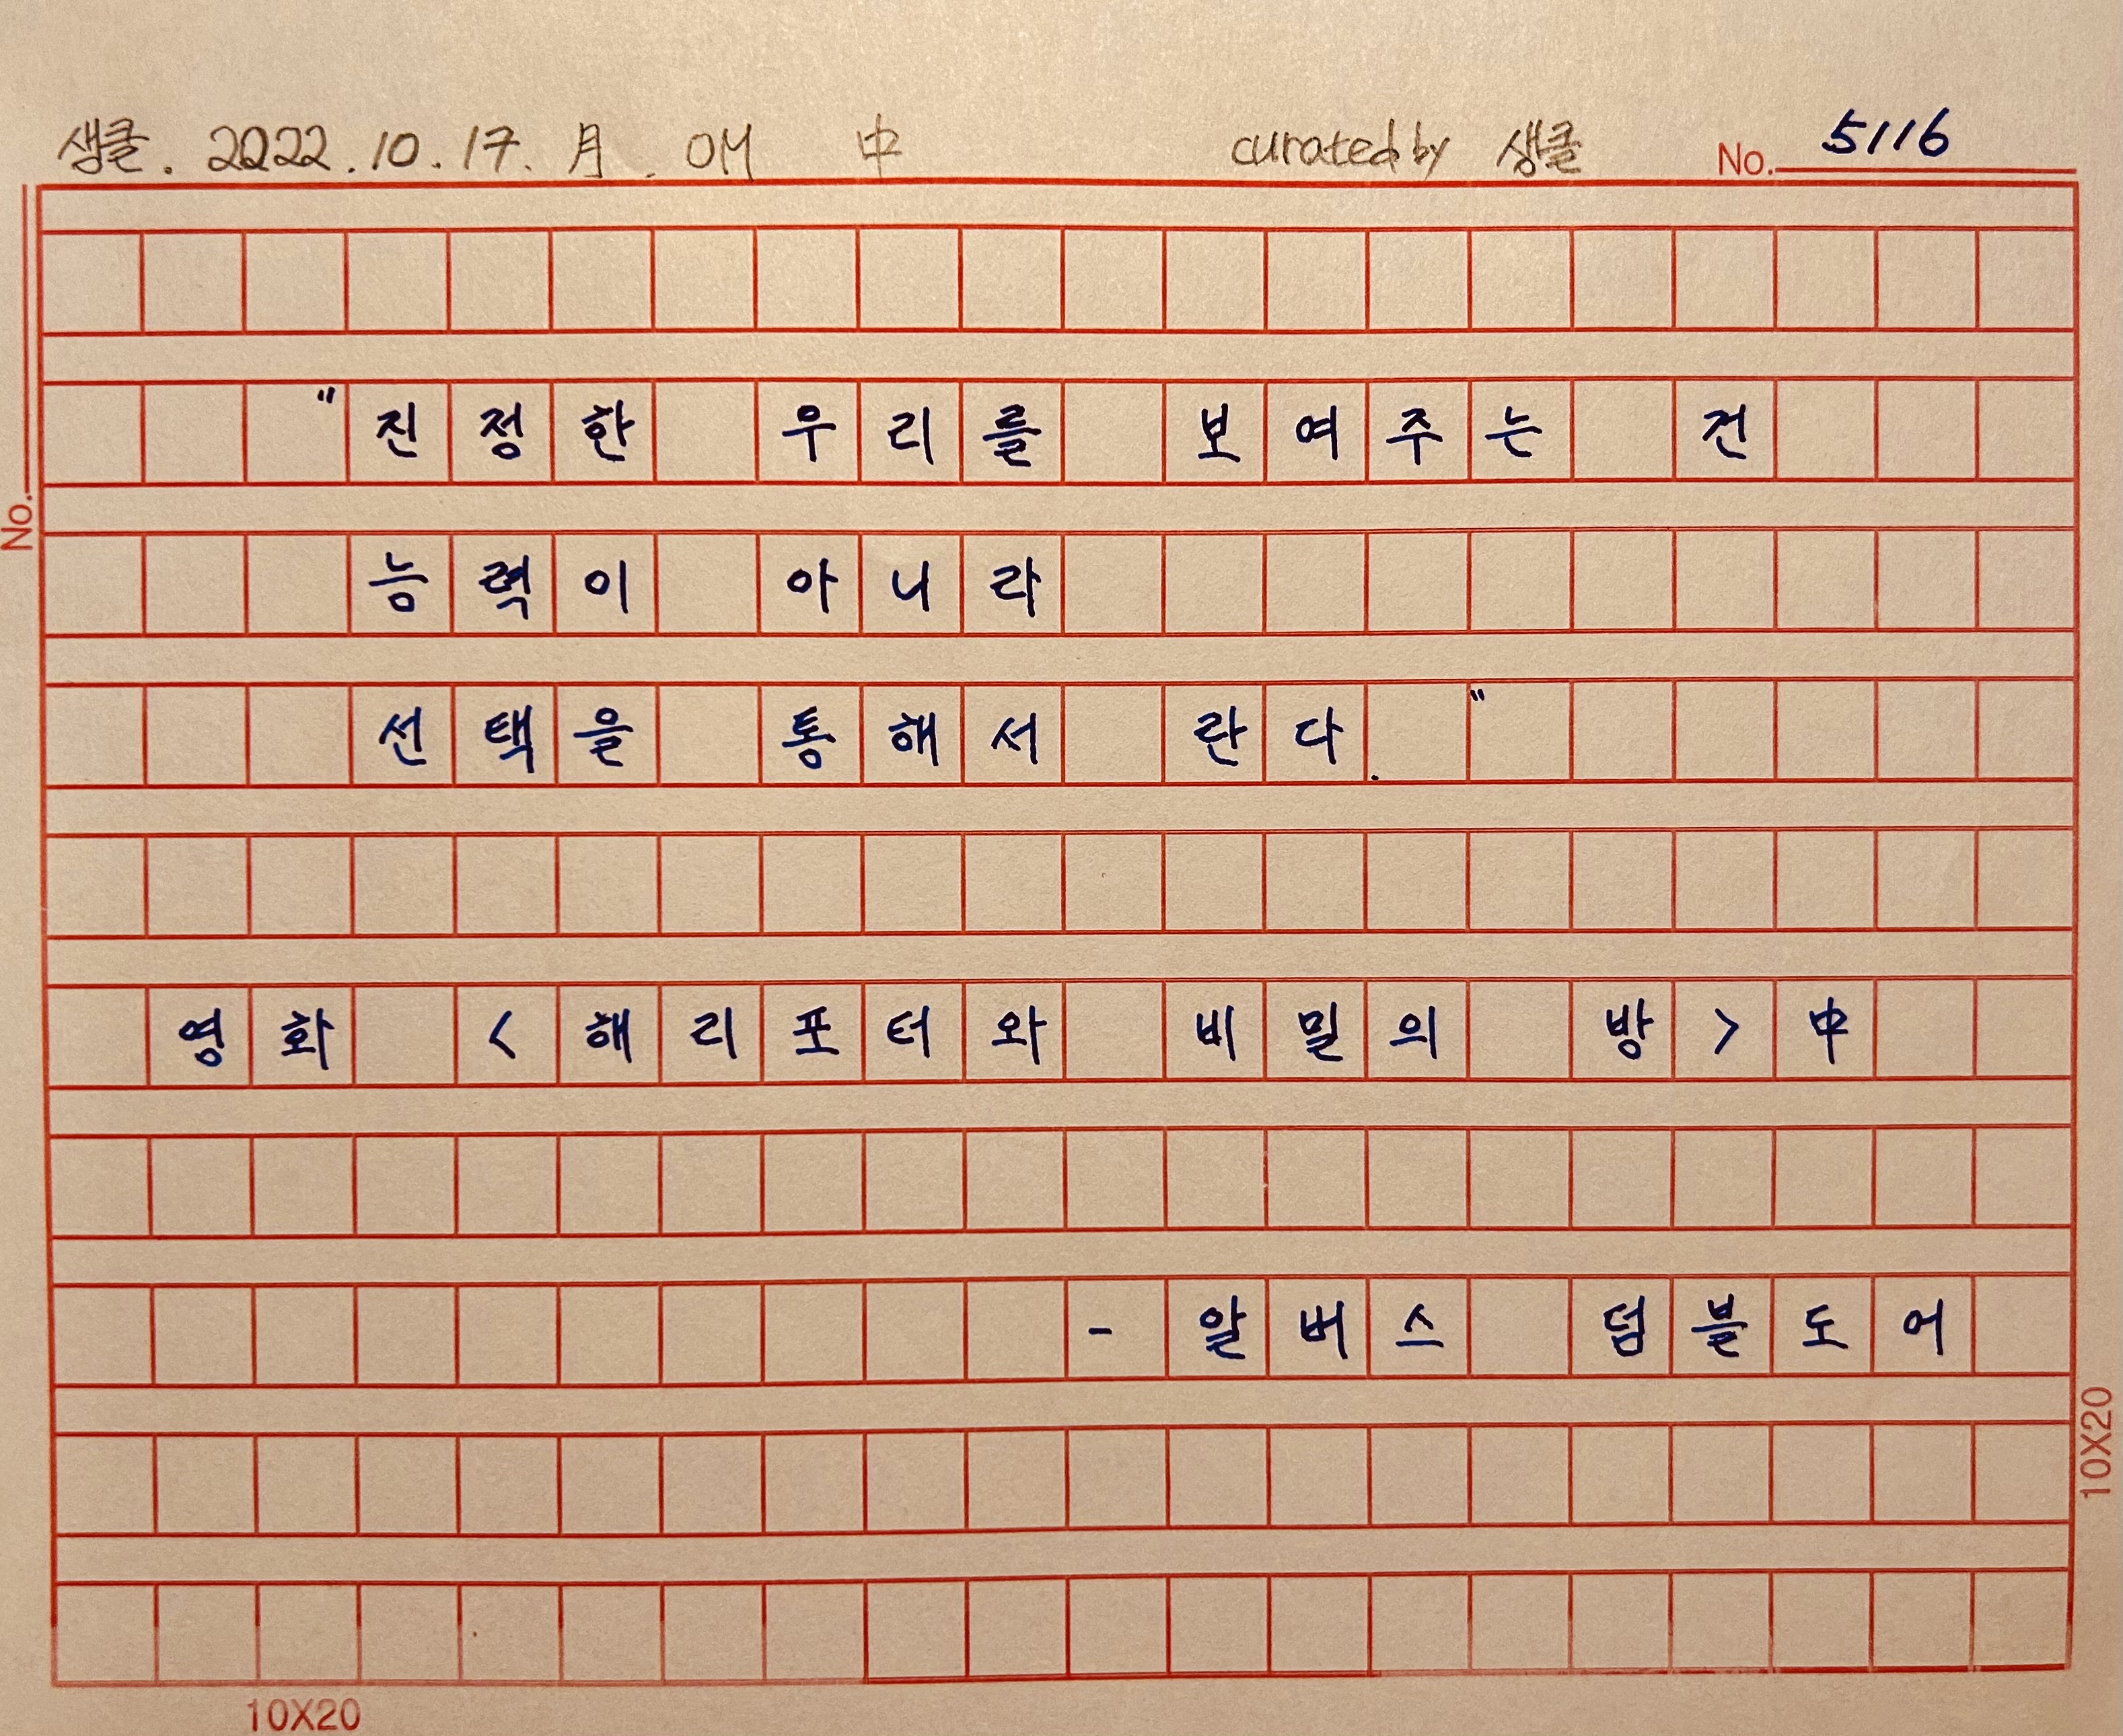 생클. 2022.10.17. 月. OM 中 curated by 생클 No. 5116
No.
"진정한 우리를 보여주는 건
능력이 아니라
선택을 통해서 란다."
영화 <해리포터와 비밀의 방>中
- 알버스 덤블도어
10X20
10X20